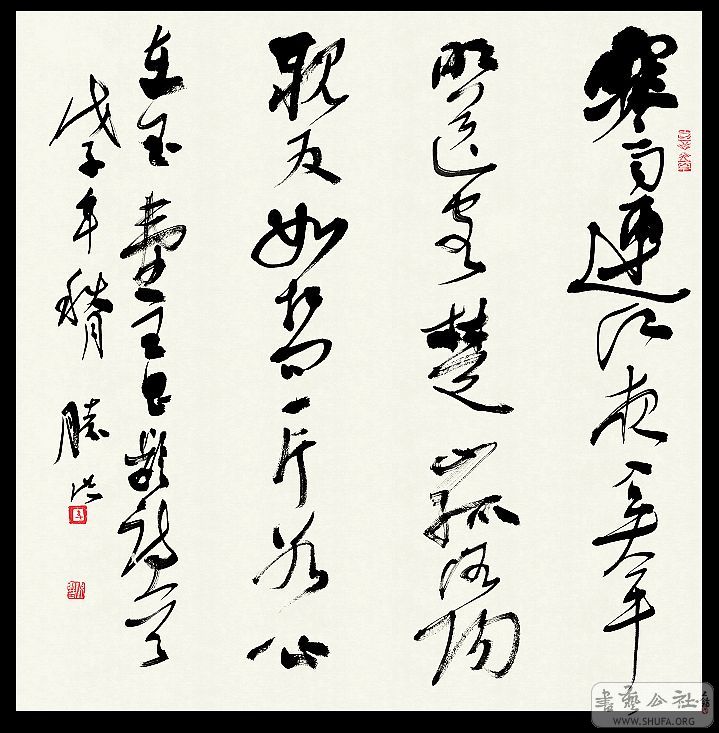 寒雨連江夜入吳平
明送客楚山孤洛陽
親友如相問一片冰心
在玉壺王昌齡詩一首
戊子年秋月勝
書藝公社
WWW.SHUFA.ORG